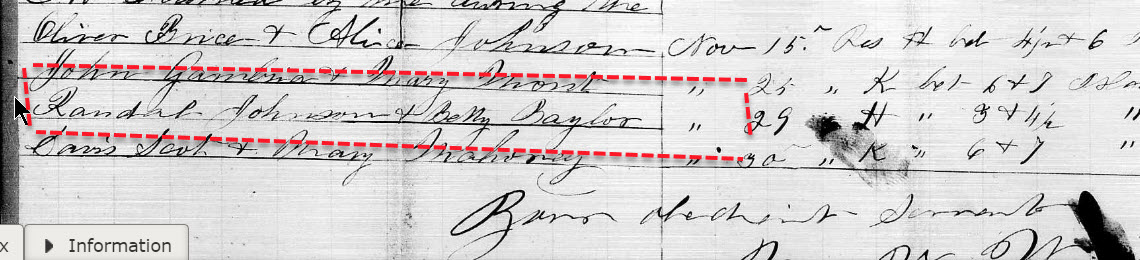 by me during the
Oliver Brice & Alice Johnson Nov 15" Res H bet 4½ & 6
John & Mary " 25 " K bet 6 & 7
Randal Johnson & Betty Baylor " 29 H " 3 & 4½ "
Davis Scot & Mary Mahoney " 30 " K " 6 & 7 "
Your obedient Servant
x Information